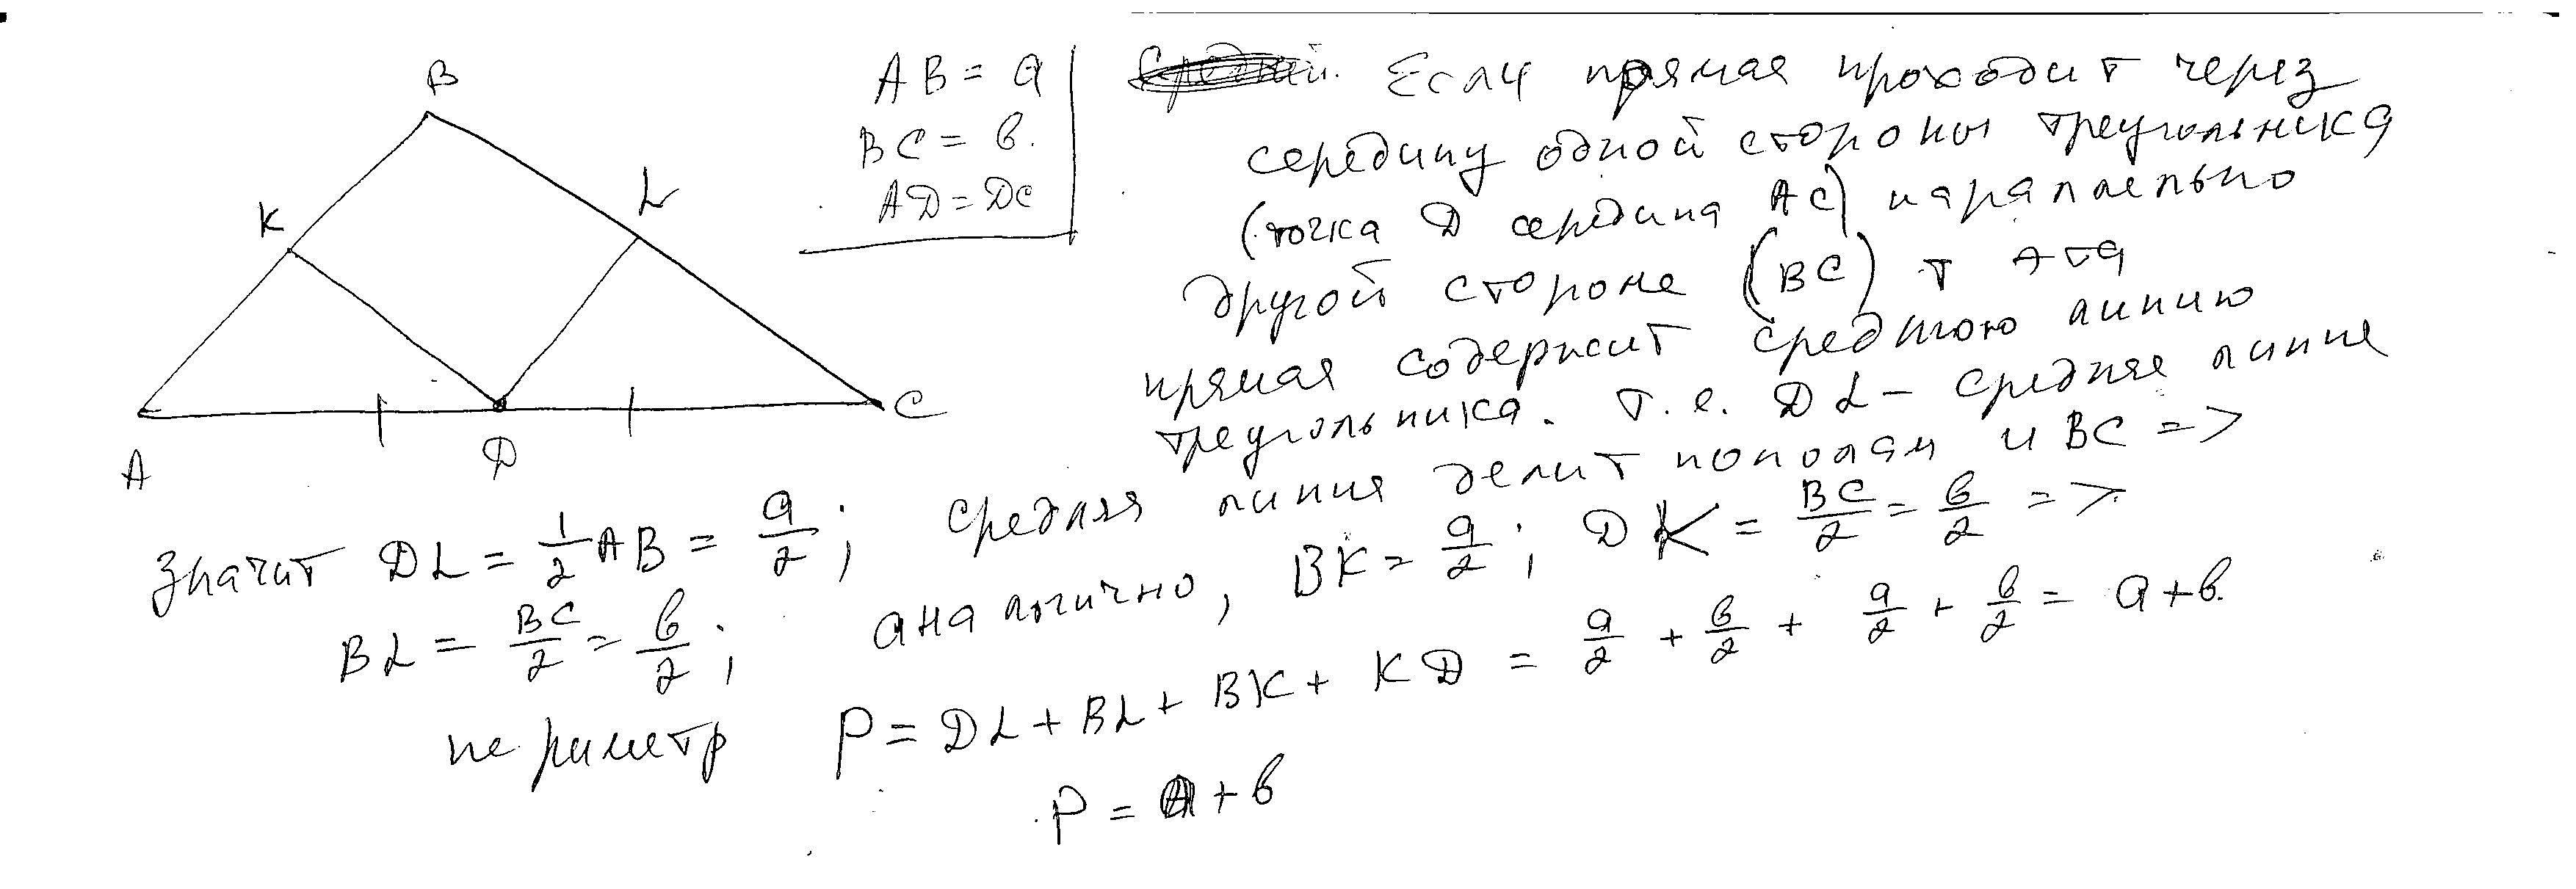 B
K
L
A
D
C
AB = a
BC = b.
AD = DC
Если прямая проходит через
середину одной стороны треугольника
(точка D середина AC) параллельно
другой стороне (BC) т эта
прямая содержит среднюю линию
треугольника. т.е. DL – средняя линия
значит DL = 1/2 AB = a/2; средняя линия делит пополам и BC =>
BL = BC/2 = b/2; аналогично, BK = a/2; DK = BC/2 = b/2 =>
периметр P = DL + BL + BK + KD = a/2 + b/2 + a/2 + b/2 = a + b.
P = a + b